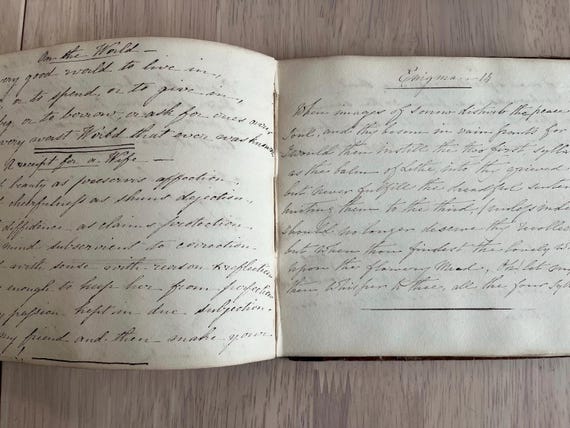 On the World —
very good world to live in,
or to spend or to give in,
or to borrow, or ask for ones own
very worst World that ever was known
A receipt for a Wife —
beauty as preserves affection
cheerfulness as shuns dejection,
diffidence as claims protection,
mind subservient to correction
with sense with reason & reflection
enough to keep her from perfection
passion kept in due subjection.
friend and then make your
Enigma 14
When images of sorrow disturb the peace
Soul, and his bosom in vain pants for
I would then instille the two first sylla
as the balm of Lethe, into thy grieved
but never fulfill the dreadful senten
uniting them to the third, (unless
should no longer deserve thy recollec
but when thou findest the lonely
upon the flowery Mead, Oh! let
them whisper to thee, all the four Syl